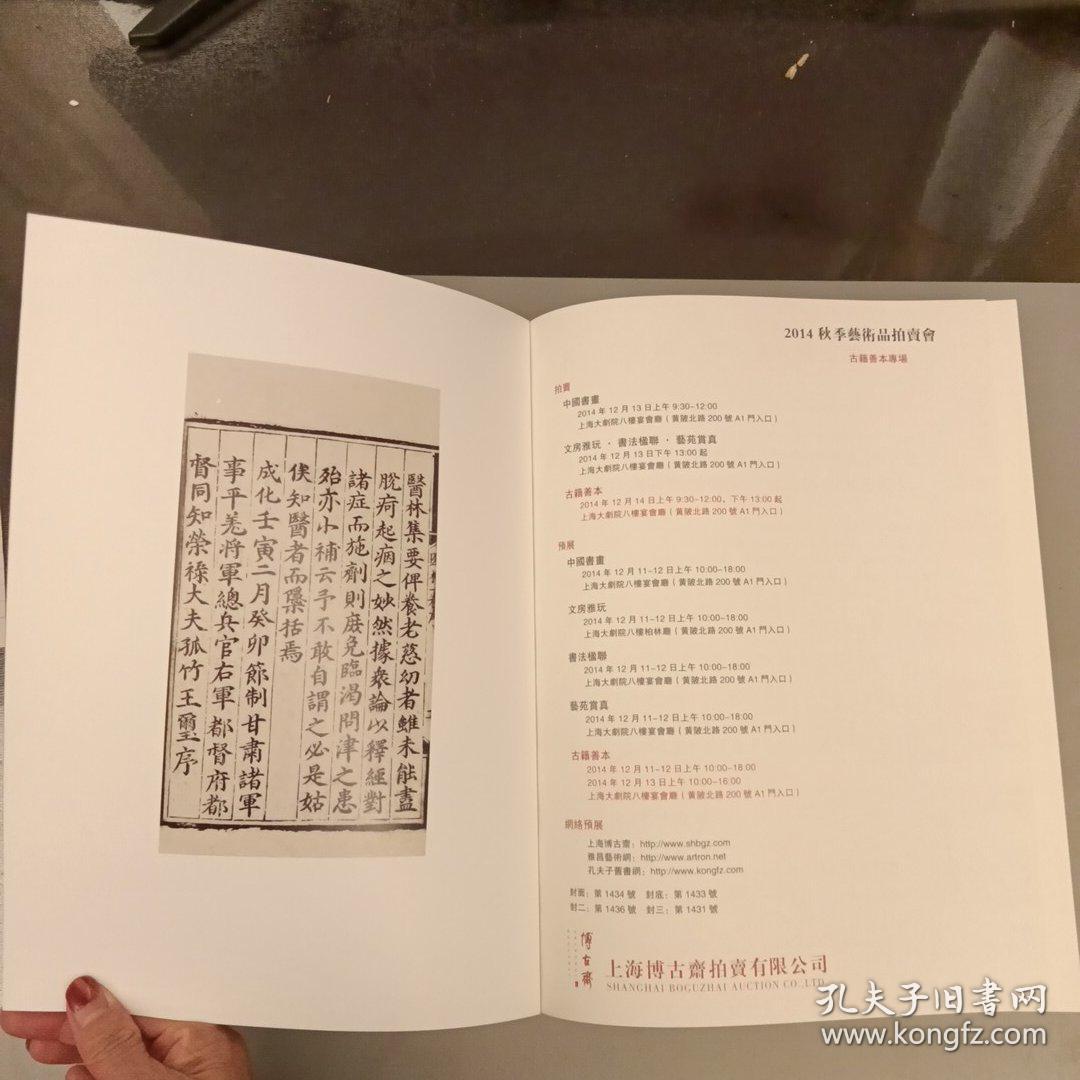 醫林集要俾養老慈幼者雖未能盡
脫疴起痼之妙然據衆論以釋經對
諸症而施劑則庶免臨渴問津之患
殆亦小補云予不敢自謂之必是姑
俟知醫者而隱括焉
成化壬寅二月癸卯節制甘肅諸軍
事平羌將軍總兵官右軍都督府都
督同知榮祿大夫孤竹王璽序
2014 秋季藝術品拍賣會
古籍善本專場
拍賣
中國書畫
2014 年 12 月 13 日上午 9:30-12:00
上海大劇院八樓宴會廳（黃陂北路 200 號 A1 門入口）
文房雅玩 · 書法楹聯 · 藝苑賞真
2014 年 12 月 13 日下午 13:00 起
上海大劇院八樓宴會廳（黃陂北路 200 號 A1 門入口）
古籍善本
2014 年 12 月 14 日上午 9:30-12:00，下午 13:00 起
上海大劇院八樓宴會廳（黃陂北路 200 號 A1 門入口）
預展
中國書畫
2014 年 12 月 11-12 日上午 10:00-18:00
上海大劇院八樓宴會廳（黃陂北路 200 號 A1 門入口）
文房雅玩
2014 年 12 月 11-12 日上午 10:00-18:00
上海大劇院八樓柏林廳（黃陂北路 200 號 A1 門入口）
書法楹聯
2014 年 12 月 11-12 日上午 10:00-18:00
上海大劇院八樓宴會廳（黃陂北路 200 號 A1 門入口）
藝苑賞真
2014 年 12 月 11-12 日上午 10:00-18:00
上海大劇院八樓宴會廳（黃陂北路 200 號 A1 門入口）
古籍善本
2014 年 12 月 11-12 日上午 10:00-18:00
2014 年 12 月 13 日上午 10:00-16:00
上海大劇院八樓宴會廳（黃陂北路 200 號 A1 門入口）
網絡預展
上海博古齋：http://www.shbgz.com
雅昌藝術網：http://www.artron.net
孔夫子舊書網：http://www.kongfz.com
封面：第 1434 號 封底：第 1433 號
封二：第 1436 號 封三：第 1431 號
博古齋
上海博古齋拍賣有限公司
SHANGHAI BOGUZHAI AUCTION CO.,LTD
孔夫子旧书网
www.kongfz.com